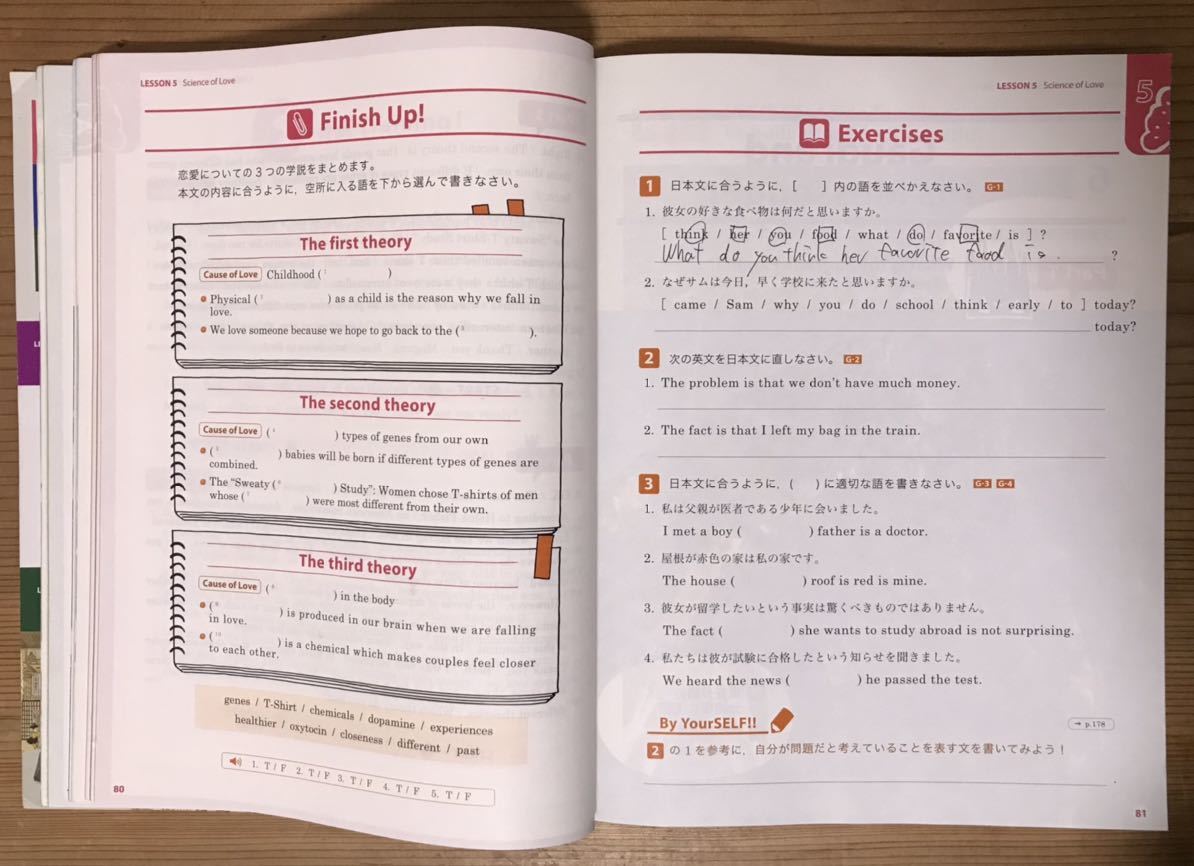 LESSON 5 Science of Love
Finish Up!
恋愛についての3つの学説をまとめます。
本文の内容に合うように，空所に入る語を下から選んで書きなさい。
The first theory
Cause of Love Childhood (1 )
Physical (2 ) as a child is the reason why we fall in
love.
We love someone because we hope to go back to the (3 ).
The second theory
Cause of Love (4 ) types of genes from our own
(5 ) babies will be born if different types of genes are
combined.
The "Sweaty (6 ) Study": Women chose T-shirts of men
whose (7 ) were most different from their own.
The third theory
Cause of Love (8 ) in the body
(9 ) is produced in our brain when we are falling
in love.
(10 ) is a chemical which makes couples feel closer
to each other.
genes / T-Shirt / chemicals / dopamine / experiences
healthier / oxytocin / closeness / different / past
1. T / F 2. T / F 3. T / F 4. T / F 5. T / F
80
LESSON 5 Science of Love
5
Exercises
1 日本文に合うように，[ ] 内の語を並べかえなさい。 G-1
1. 彼女の好きな食べ物は何だと思いますか。
[ think / her / you / food / what / do / favorite / is ] ?
What do you think her favorite food is. ?
2. なぜサムは今日，早く学校に来たと思いますか。
[ came / Sam / why / you / do / school / think / early / to ] today?
today?
2 次の英文を日本文に直しなさい。 G-2
1. The problem is that we don't have much money.
2. The fact is that I left my bag in the train.
3 日本文に合うように，( ) に適切な語を書きなさい。 G-3 G-4
1. 私は父親が医者である少年に会いました。
I met a boy ( ) father is a doctor.
2. 屋根が赤色の家は私の家です。
The house ( ) roof is red is mine.
3. 彼女が留学したいという事実は驚くべきものではありません。
The fact ( ) she wants to study abroad is not surprising.
4. 私たちは彼が試験に合格したという知らせを聞きました。
We heard the news ( ) he passed the test.
By YourSELF!!
→ p.178
2 の1を参考に，自分が問題だと考えていることを表す文を書いてみよう！
81